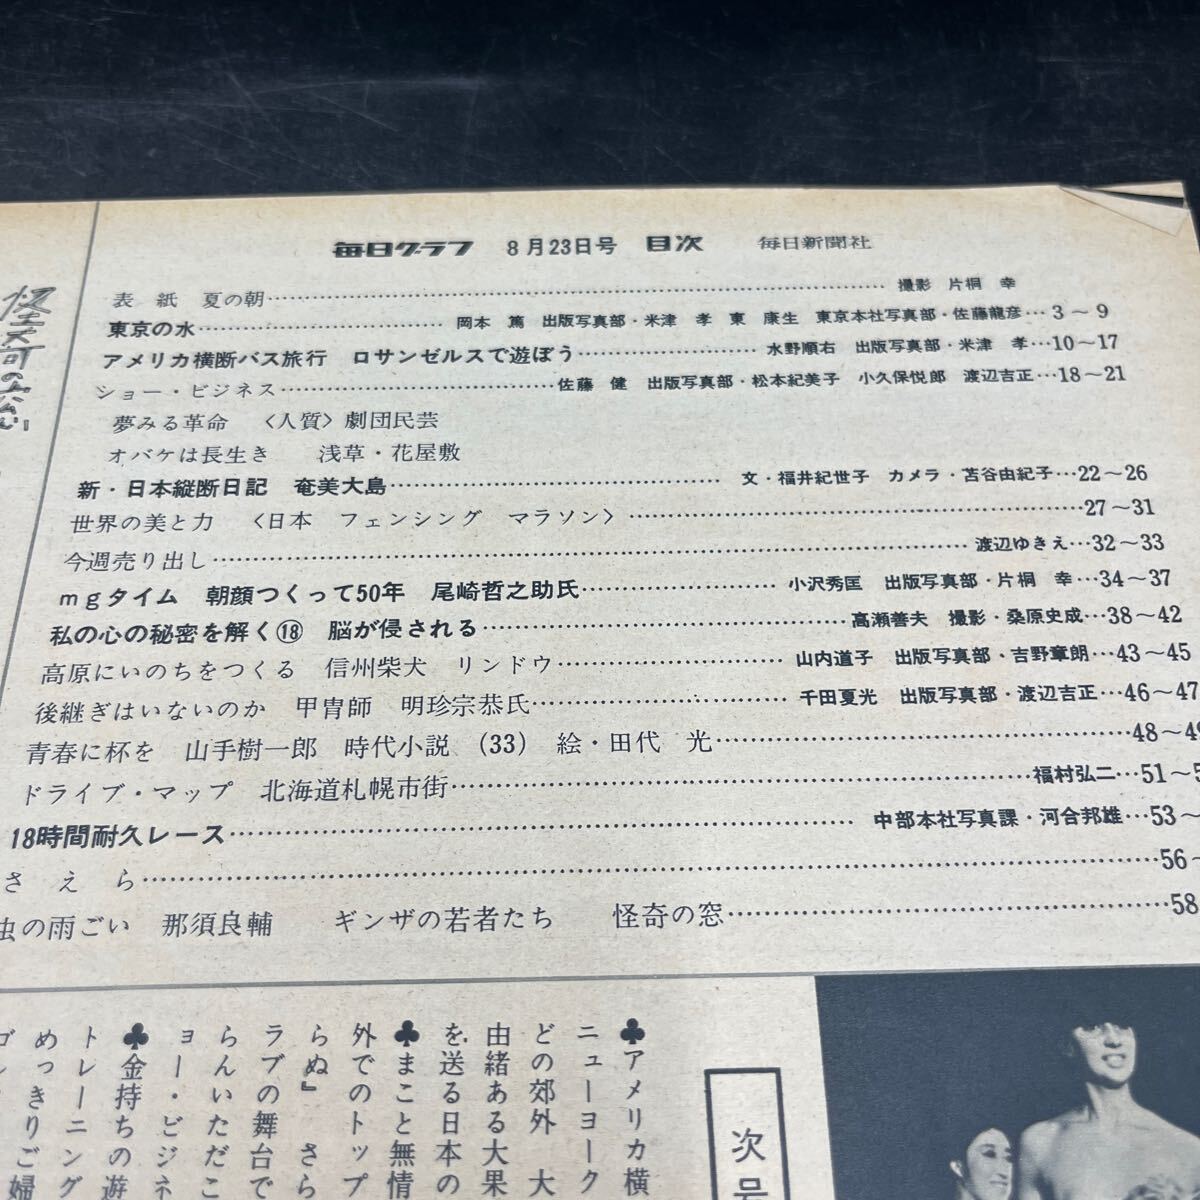 毎日グラフ 8月23日号 目次 毎日新聞社
表 紙 夏の朝……撮影 片桐 幸
東京の水……岡本 篤 出版写真部・米津 孝 東 康生 東京本社写真部・佐藤龍彦…3～9
アメリカ横断バス旅行 ロサンゼルスで遊ぼう……水野順右 出版写真部・米津 孝…10～17
ショー・ビジネス……佐藤 健 出版写真部・松本紀美子 小久保悦郎 渡辺吉正…18～21
夢みる革命 〈人質〉劇団民芸
オバケは長生き 浅草・花屋敷
新・日本縦断日記 奄美大島……文・福井紀世子 カメラ・苫谷由紀子…22～26
世界の美と力 〈日本 フェンシング マラソン〉……27～31
今週売り出し……渡辺ゆきえ…32～33
mgタイム 朝顔つくって50年 尾崎哲之助氏……小沢秀匡 出版写真部・片桐 幸…34～37
私の心の秘密を解く⑱ 脳が侵される……高瀬善夫 撮影・桑原史成…38～42
高原にいのちをつくる 信州柴犬 リンドウ……山内道子 出版写真部・吉野章朗…43～45
後継ぎはいないのか 甲冑師 明珍宗恭氏……千田夏光 出版写真部・渡辺吉正…46～47
青春に杯を 山手樹一郎 時代小説 (33) 絵・田代 光……48～49
ドライブ・マップ 北海道札幌市街……福村弘二…51～5
18時間耐久レース……中部本社写真課・河合邦雄…53～
さ え ら……56～
虫の雨ごい 那須良輔 ギンザの若者たち 怪奇の窓……58
怪奇の窓
次号
♣アメリカ横
ニューヨーク
どの郊外 大
由緒ある大果
を送る日本の
♣まこと無情
外でのトップ
らぬ』 さら
ラブの舞台で
らんいただこ
ョー・ビジネ
♣金持ちの遊
トレーニング
めっきりご婦